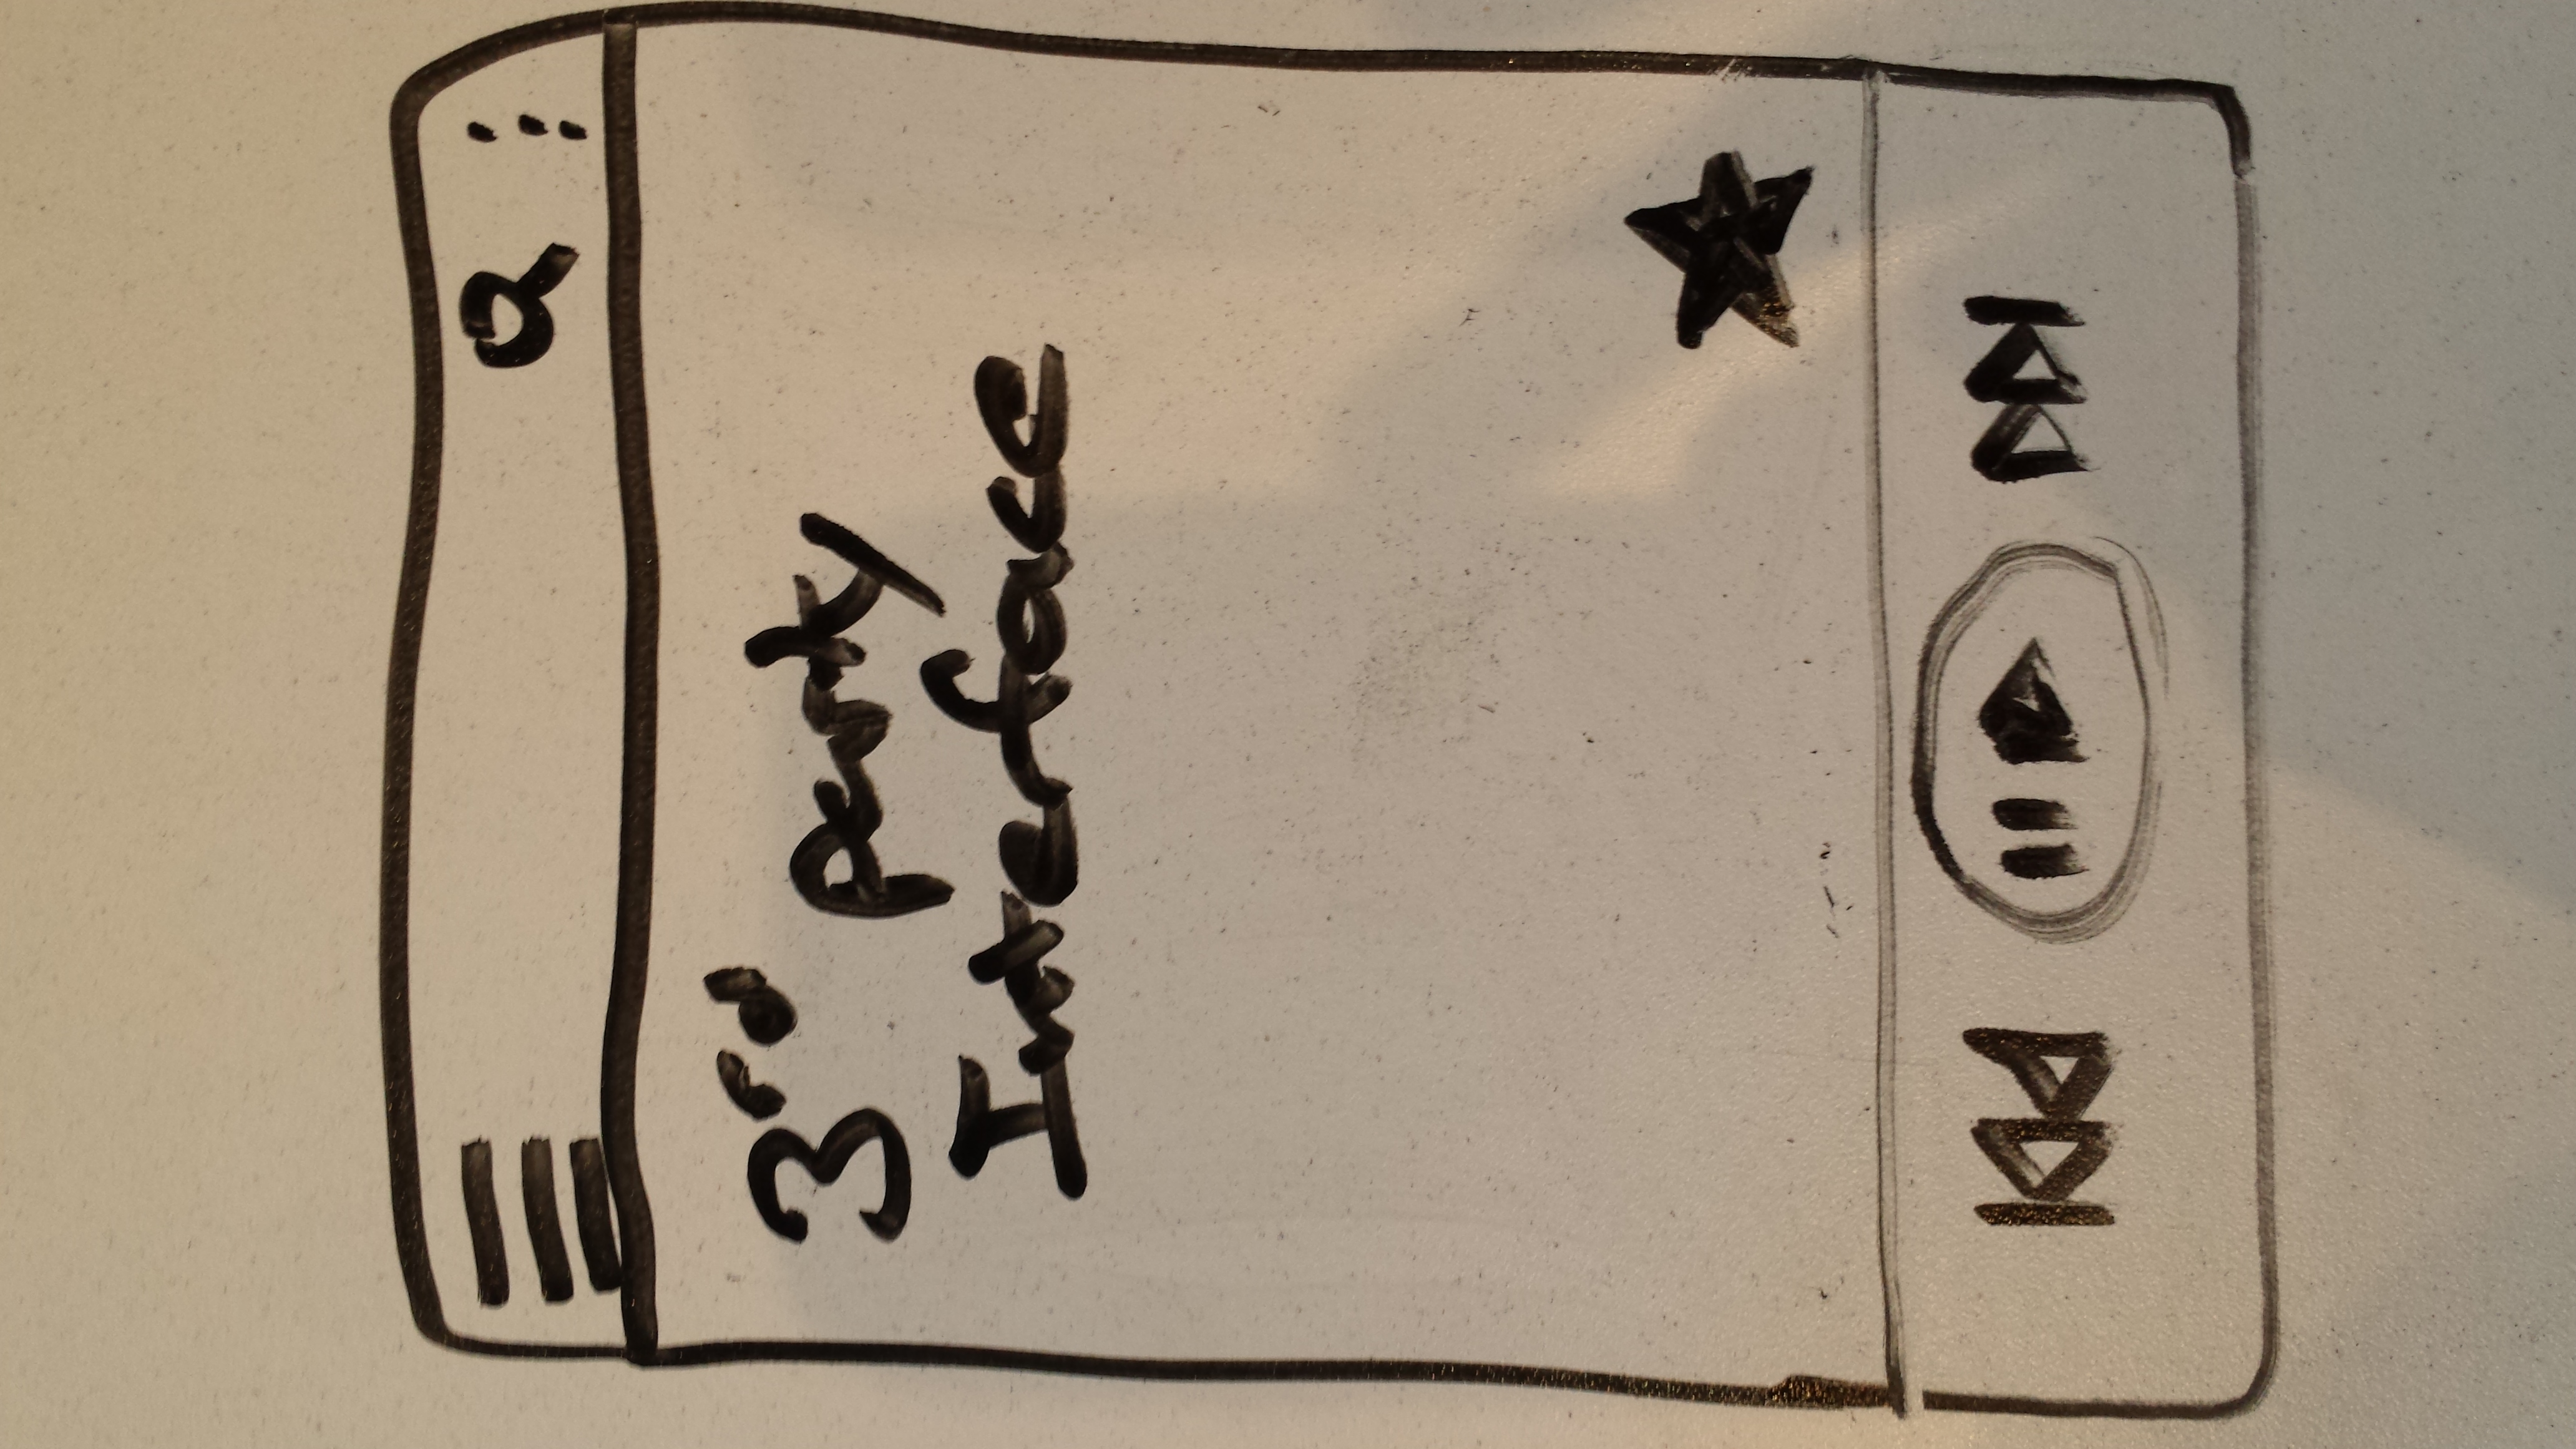 3rd party
Interface